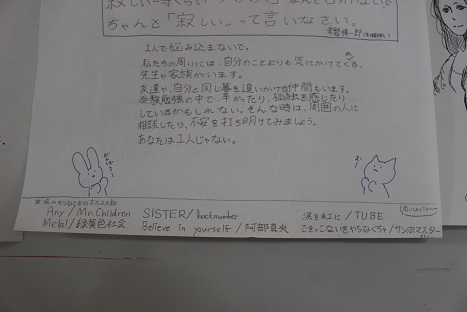 ちゃんと「寂しい」って言いなさい。
1人で悩み込まないで。
私たちの周りには、自分のことよりも気にかけてくれる、
先生や家族がいます。
友達や、自分と同じ夢を追いかける仲間もいます。
受験勉強の中で、辛かったり、孤独を感じたり
しているかもしれない。そんな時は、周囲の人に
相談したり、不安を打ち明けてみましょう。
あなたは1人じゃない。
Any/Mr.Children SISTER/backnumber 涙を虹に/TUBE
Metal/緑黄色社会 Believe in yourself/阿部真央 できっこないをやらなくちゃ/サンボマスター